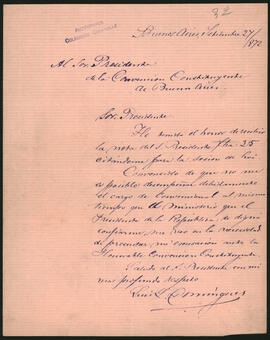 32
Buenos Aires, Setiembre 27/
1872
Al Sor. Presidente
de la Convencion Constituyente
de Buenos Aires.
Sor. Presidente
He tenido el honor de recibir
la nota del S. Presidente fha. 25
citandome para la sesion de hoi.
Convencido de que no me
es posible desempeñar debidamente
el cargo de Convencional al mismo
tiempo que el ministerio que el
Presidente de la República se dignó
confiarme, me veo en la necesidad
de presentar mi renuncia ante la
Honorable Convencion Constituyente.
Saludo al S. Presidente con mi
mas profundo respeto
Luis L. Dominguez